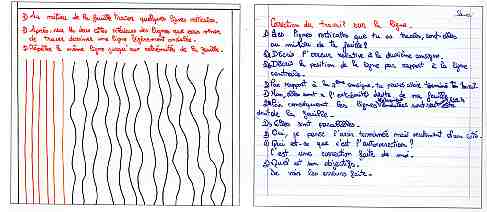 1) Au milieu de la feuille tracer quelques lignes verticales.
2) Après, sur les deux côtés des lignes que vous venez
de tracer dessiner une ligne légèrement ondulée.
3) Répéter la même ligne jusqu'aux extrémités de la feuille.
Correction du travail sur la ligne.
1) Les lignes verticales que tu as tracées, sont-elles
au milieu de ta feuille?
2) Décris l'erreur relative à la deuxième consigne.
Décris la position de la ligne par rapport à la ligne
contraire.
3) Par rapport à la 3ème consigne, tu penses avoir terminé ton travail
1) Non, elles sont à l'extrémité droite de ma feuille
Par conséquent les lignes sont
de la feuille.
Elles sont parallèles.
3) Oui, je pense l'avoir terminé mais seulement d'un côté.
Qu'est-ce que l'autocorrection?
C'est une correction faite de moi.
Quel est son objectif.
De voir les erreurs faites.